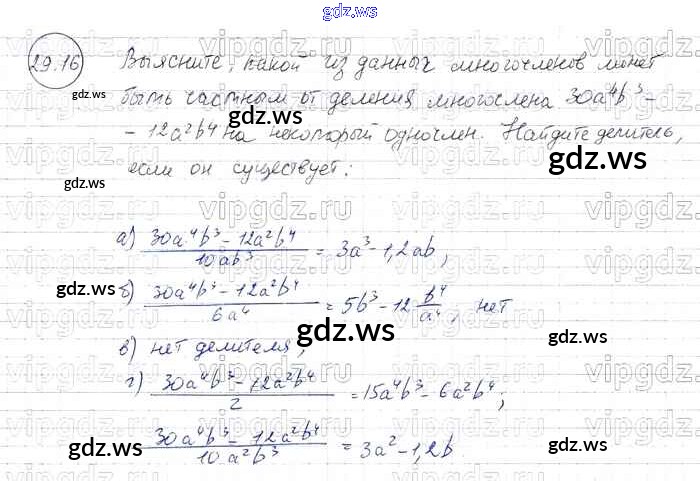 gdz.ws
29.16 Выясните, какой из данных многочленов может
быть частным от деления многочлена 30a⁴b³ –
– 12a²b⁴ на некоторый одночлен. Найдите делитель,
если он существует:
а) (30a⁴b³ – 12a²b⁴)/(10ab³) = 3a³ – 1,2ab,
б) (30a⁴b³ – 12a²b⁴)/(6a⁴) = 5b³ – 12 b⁴/a⁴, нет
в) нет делителя;
г) (30a⁴b³ – 12a²b⁴)/2 = 15a⁴b³ – 6a²b⁴;
(30a⁴b³ – 12a²b⁴)/(10a²b³) = 3a² – 1,2b.
vipgdz.ru
gdz.ws